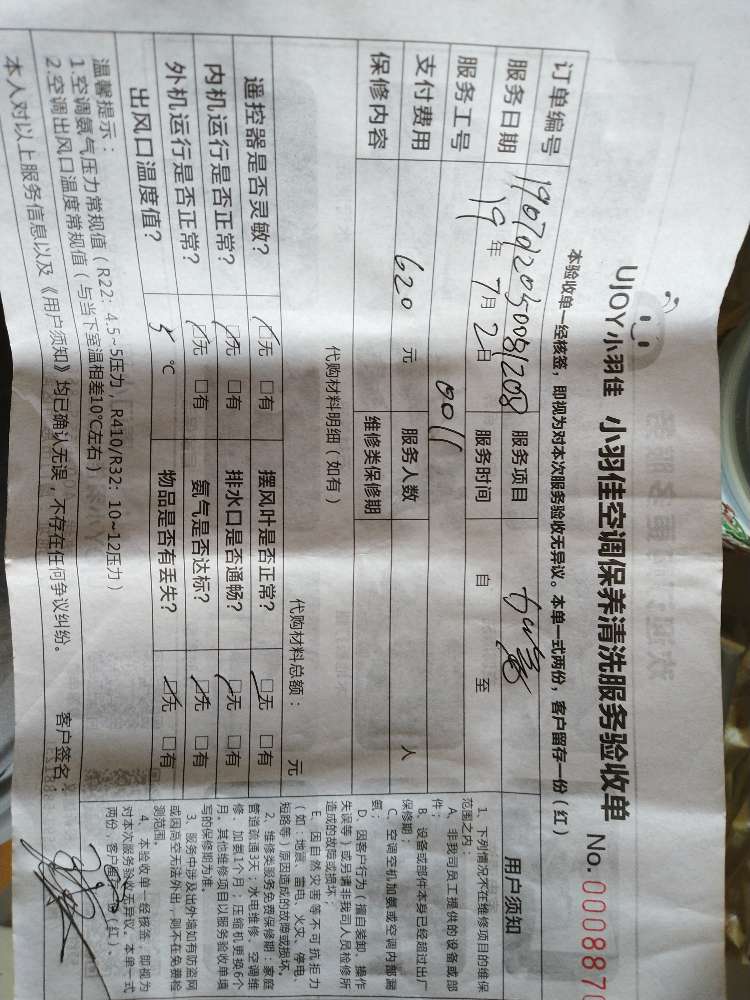 UJOY小羽佳 小羽佳空调保养清洗服务验收单 No.0008870
本验收单一经核签，即视为对本次服务验收无异议。本单一式两份，客户留存一份（红）
订单编号 服务项目
服务日期 19年7月2日 服务时间 自 至
服务工号 0011
支付费用 620元 服务人数 人
保修内容 维修类保修期
代购材料明细（如有） 代购材料总额： 元
遥控器是否灵敏？ □无 □有 摆风叶是否正常？ □无 □有
内机运行是否正常？ □无 □有 排水口是否通畅？ □无 □有
外机运行是否正常？ □无 □有 氨气是否达标？ □无 □有
出风口温度值？ 5 ℃ 物品是否有丢失？ □无 □有
温馨提示：
1.空调氨气压力常规值（R22：4.5~5压力，R410/R32：10~12压力）
2.空调出风口温度常规值（与当下室温相差10℃左右）
本人对以上服务信息以及《用户须知》均已确认无误，不存在任何争议纠纷。 客户签名：
用户须知
1、下列情况不在维修项目的维保
范围之内：
A、非我司员工提供的设备或部
件；
B、设备或部件本身已经超过出厂
保修期；
C、空调空机加氨或空调内部漏
氨；
D、因客户行为（擅自装卸、操作
失误等）或另请非我司人员检修所
造成的故障或损坏；
E、因自然灾害等不可抗拒力
（如：地震、雷电、火灾、停电、
短路等）原因造成的故障或损坏。
2、维修类服务免费保修期：家庭
管道疏通3天；水电维修、空调维
修、加氨1个月；压缩机更换6个
月。其他维修项目以服务验收单填
写的保修期为准。
3、服务中涉及出外墙如有防盗网
或因高空无法外出，则不在免费检
测范围。
4、本验收单一经核签，即视为
对本次服务验收无异议。本单一式
两份，客户留存一份（红）。